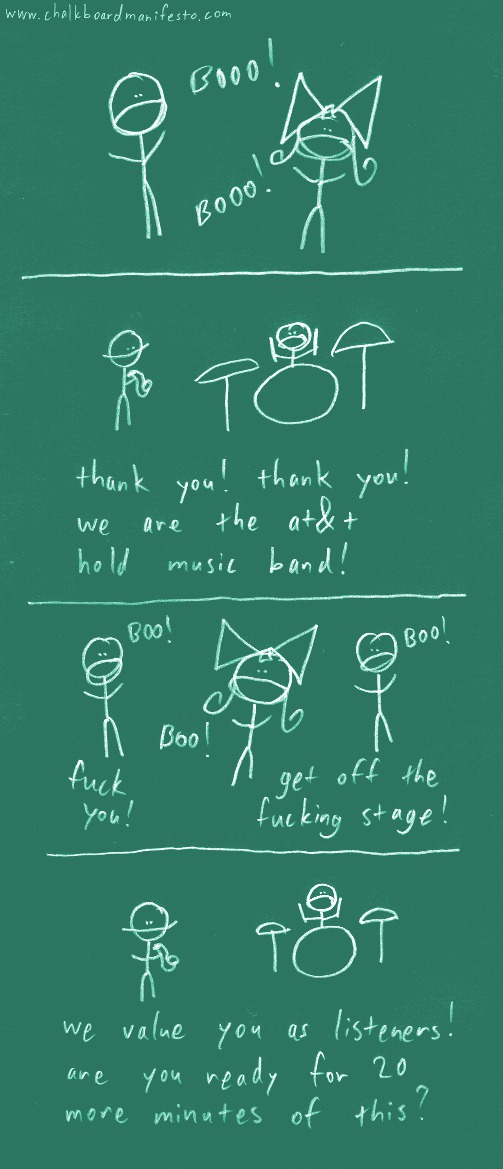 www.chalkboardmanifesto.com
BOOO!
BOOO!
thank you! thank you!
we are the at&t
hold music band!
BOO!
BOO!
BOO!
fuck
you!
get off the
fucking stage!
we value you as listeners!
are you ready for 20
more minutes of this?